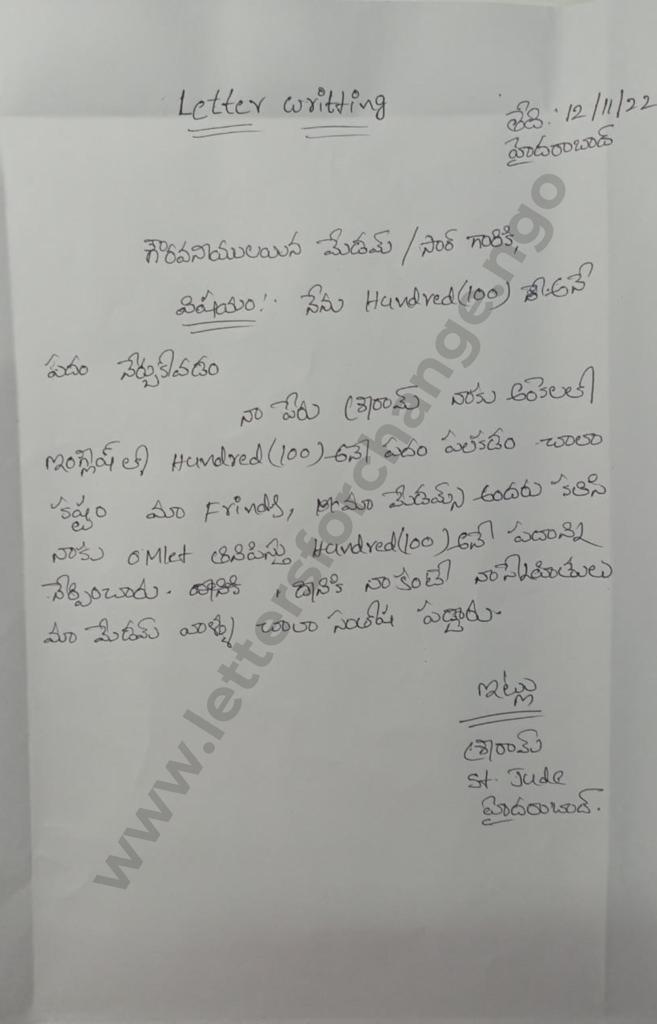 Letter writting
తేది: 12/11/22
హైదరాబాద్
గౌరవనీయులయిన మేడమ్ / సార్ గారికి,
విషయం: నేను Hundred(100) అనే
పదం నేర్చుకోవడం
నా పేరు శ్రీరామ్ నాకు అంకెలలో
ఇంగ్లీష్ లో Hundred(100) అనే పదం పలకడం చాలా
కష్టం మా Frinds, మా మేడమ్స్ అందరు కలిసి
నాకు OMlet తినిపిస్తు Hundred(100) అనే పదాన్ని
నేర్పించారు. దానికి నా కంటే నా స్నేహితులు
మా మేడమ్ వాళ్ళు చాలా సంతోష పడ్డారు.
ఇట్లు
శ్రీరామ్
St. Jude
హైదరాబాద్.
www.lettersforchange.ngo